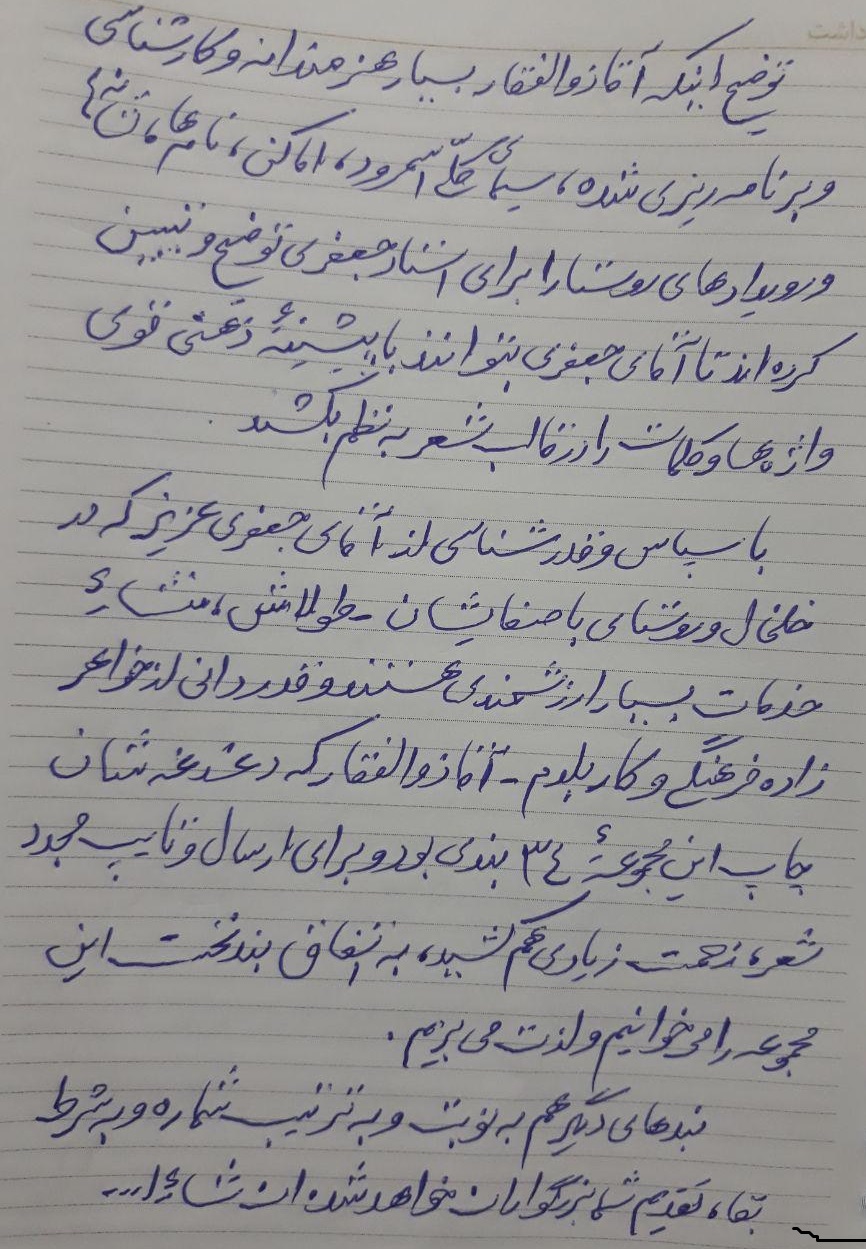 داشت
توضیح اینکه آقا ذوالفقار بسیار هنرمندانه و کارشناسی
و برنامه ریزی شده، سیمای کلّی اسمرود، اماکن، نام ها، مَثَل ها
و رویدادهای روستا را برای استاد جعفری توضیح و تبیین
کرده اند تا آقای جعفری بتوانند با پیشینهٔ ذهنی قوی
واژه ها و کلمات را در قالب شعر به نظم بکشند.
با سپاس و قدرشناسی از آقای جعفری عزیز که در
خلخال و روستای باصفایشان - طولاش، منشاءِ
خدمات بسیار ارزشمندی هستند و قدردانی از خواهر
زاده فرهنگی و کاربلدم - آقا ذوالفقار که دغدغه شان
چاپ این مجموعهٔ ۳٤ بندی بود و برای ارسال و تایپ مجدد
شعر، زحمت زیادی هم کشید، به اتفاق بند نخست این
مجموعه را می خوانیم و لذت می بریم.
بندهای دیگر هم به نوبت و به ترتیب شماره و به شرط
بقا، تقدیم شما بزرگواران خواهد شد، ان شاءا...